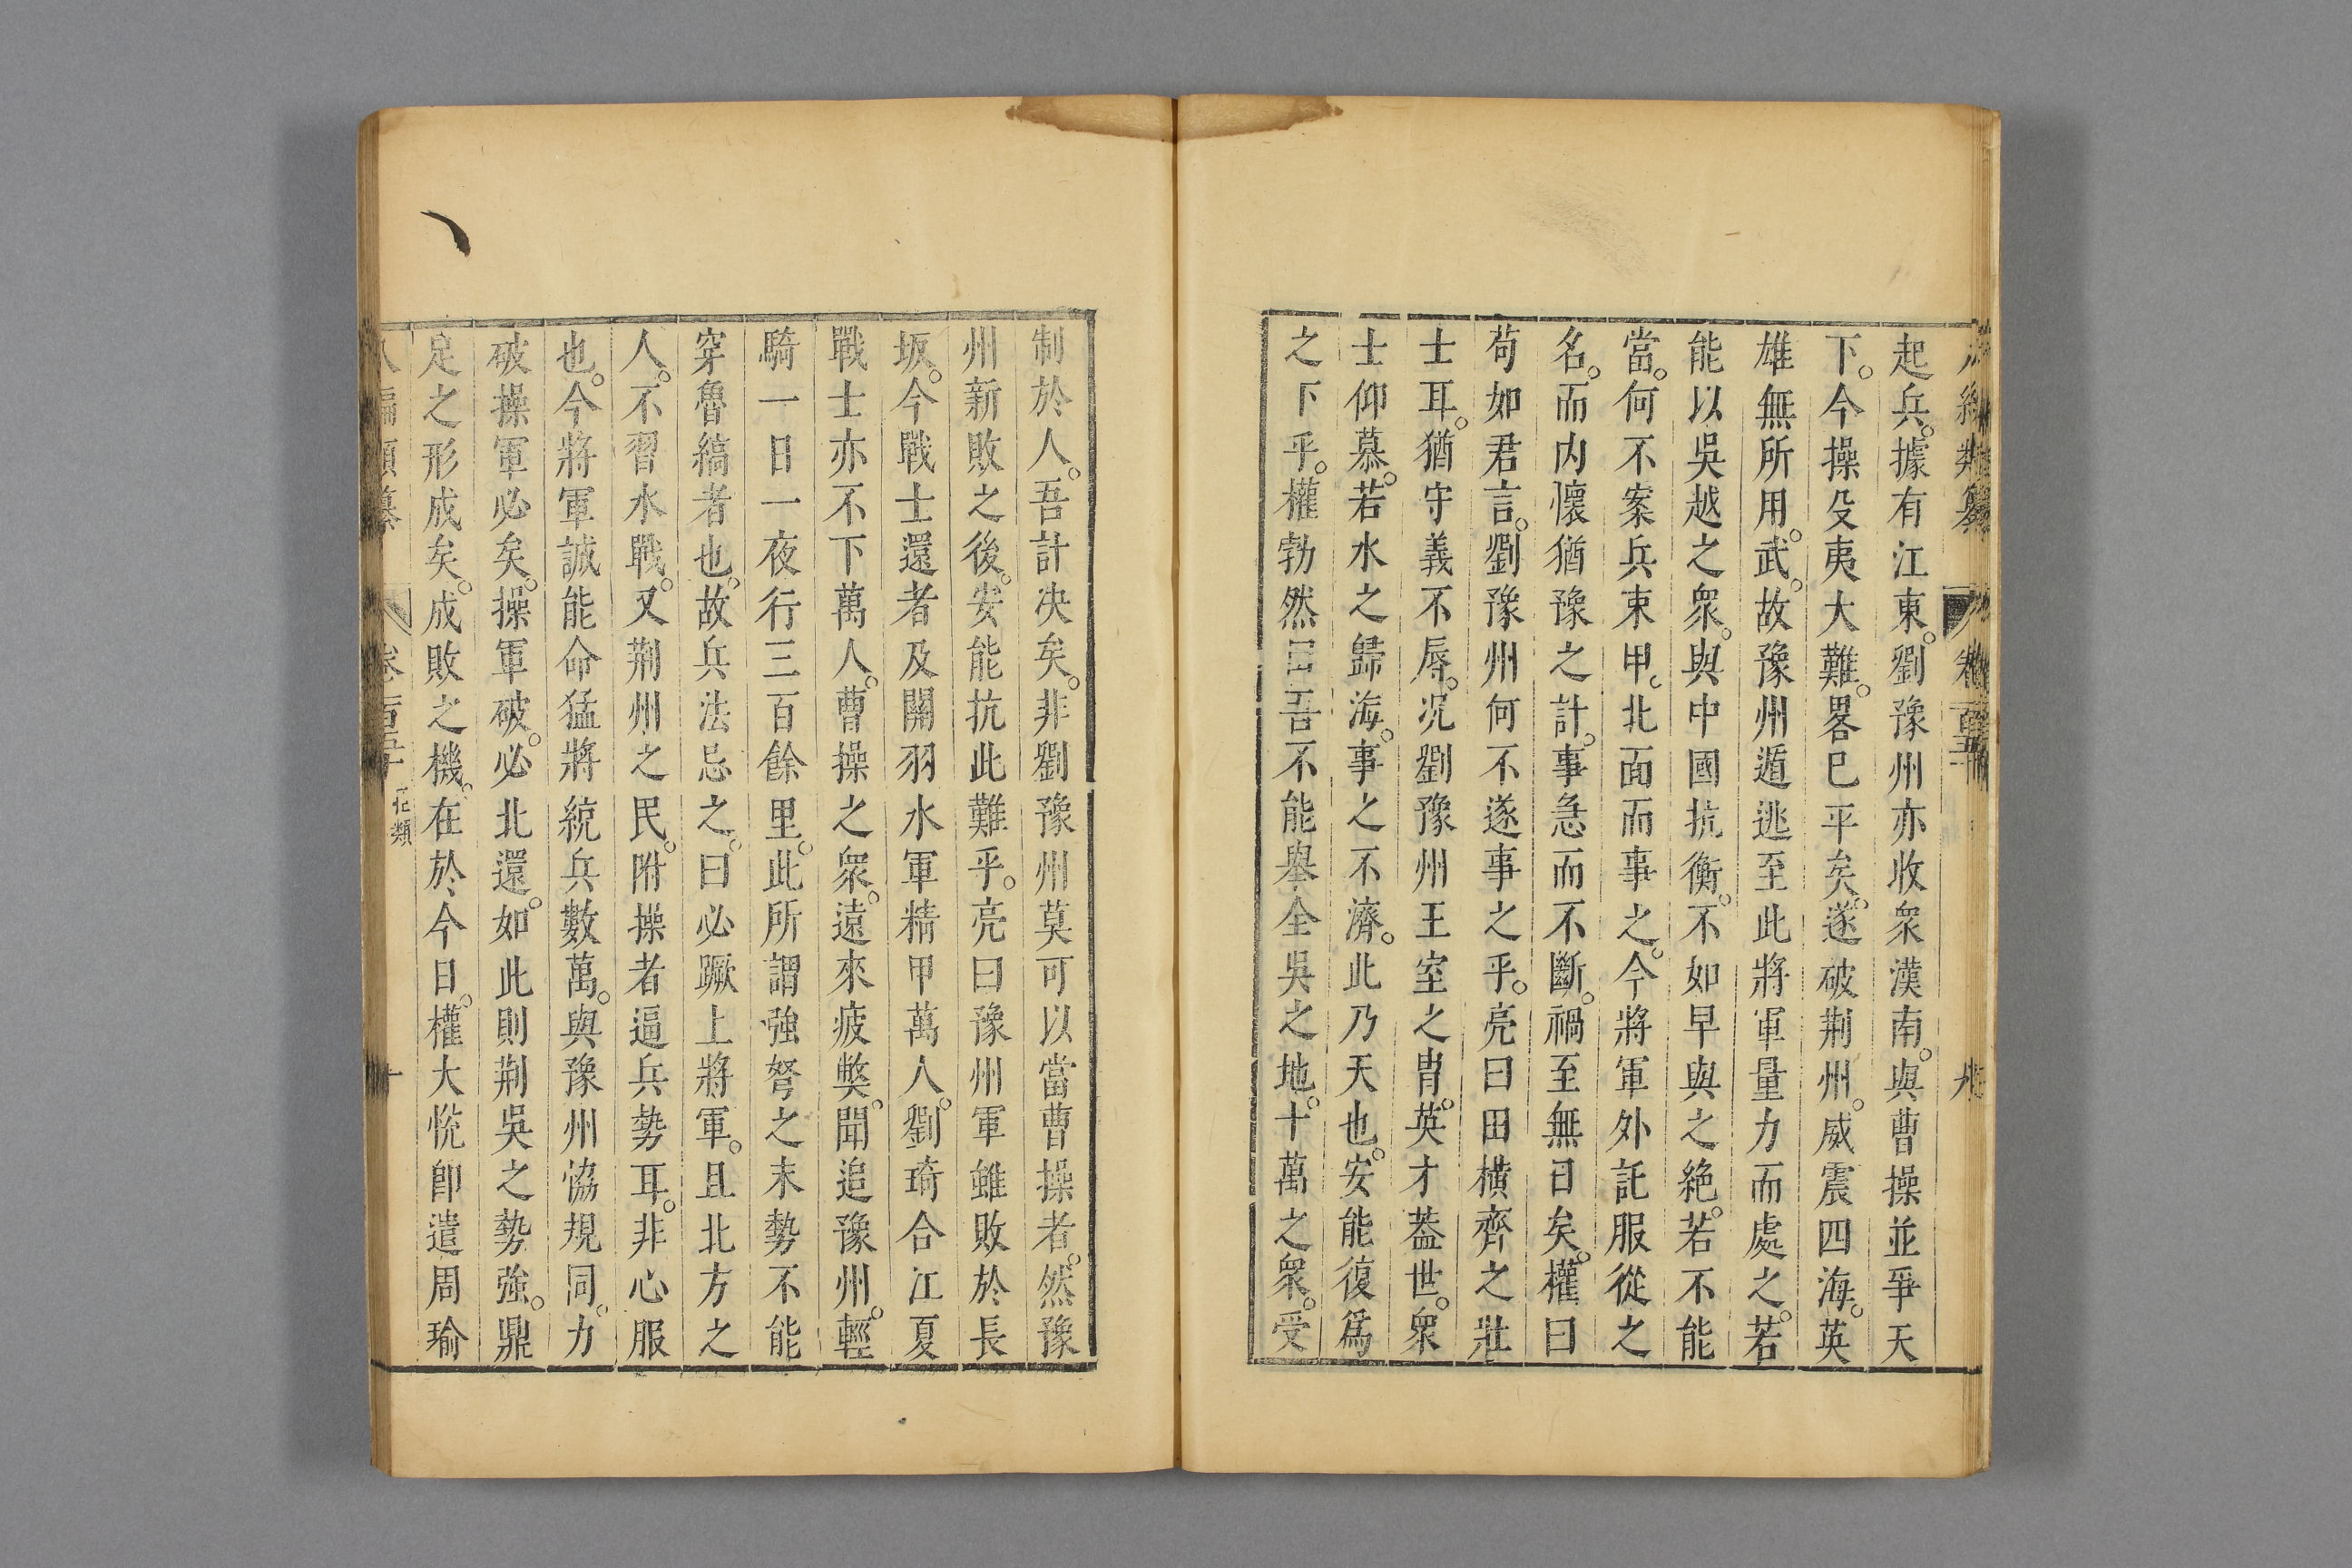 起兵。據有江東。劉豫州亦收衆漢南。與曹操並爭天
下。今操殳夷大難。畧巳平矣。遂破荆州。威震四海。英
雄無所用。武。故豫州遁逃至此將軍量力而處之。若
能以吳越之衆。與中國抗衡。不如早與之絶。若不能
當。何不案兵束甲。北面而事之。今將軍外託服從之
名。而内懷猶豫之計。事急而不斷。禍至無日矣。權曰
苟如君言。劉豫州何不遂事之乎。亮曰田橫齊之壯
士耳。猶守義不辱。况劉豫州王室之胄。英才葢世。衆
士仰慕。若水之歸海。事之不濟。此乃天也。安能復爲
之下乎。權勃然曰吾不能舉全吳之地。十萬之衆。受
制於人。吾計决矣。非劉豫州莫可以當曹操者。然豫
州新敗之後。安能抗此難乎。亮曰豫州軍雖敗於長
坂。今戰士還者及關羽水軍精甲萬人。劉琦合江夏
戰士亦不下萬人。曹操之衆。遠來疲獘。聞追豫州。輕
騎一日一夜行三百餘里。此所謂強弩之末勢不能
穿魯縞者也。故兵法忌之。曰必蹶上將軍。且北方之
人。不習水戰。又荆州之民。附操者逼兵勢耳。非心服
也。今將軍誠能命猛將統兵數萬。與豫州恊規同。力
破操軍必矣。操軍破。必北還。如此則荆吳之勢強。鼎
足之形成矣。成敗之機。在於今日。權大悅卽遣周瑜